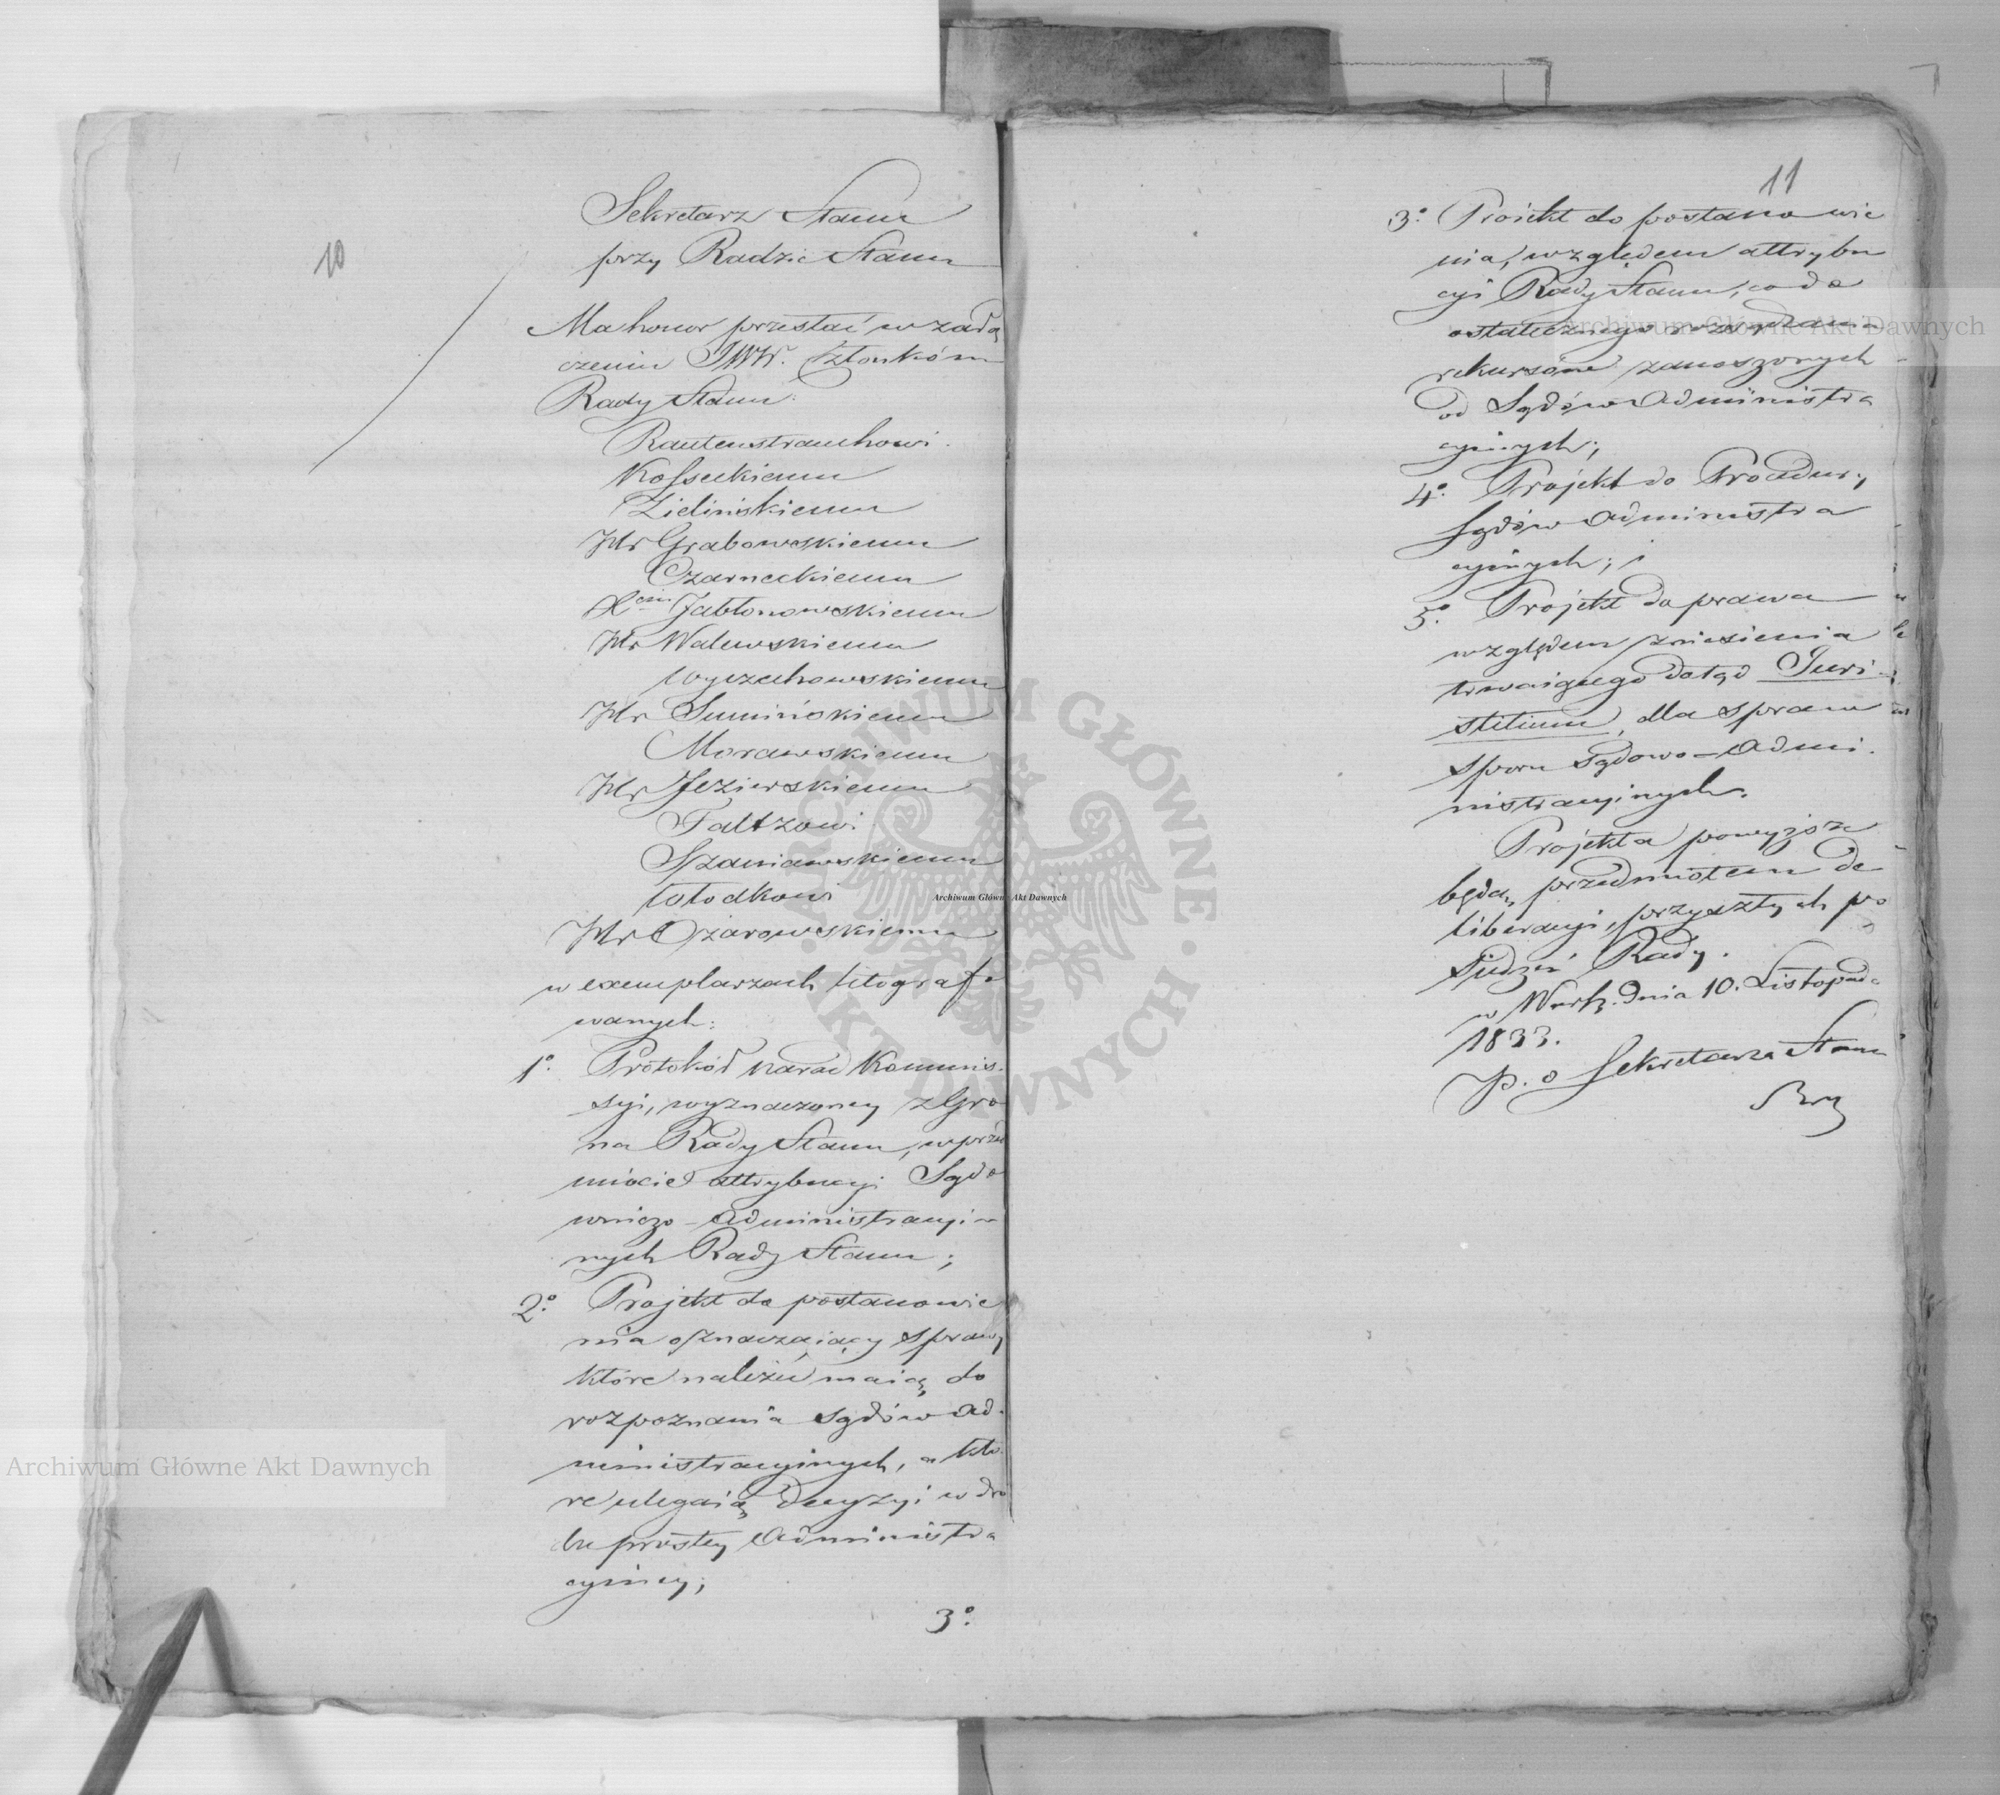 10
Sekretarz Stanu
przy Radzie Stanu
Ma honor przesłać w załą
czeniu JWW. Członkóm
Rady Stanu:
Rautenstrauchowi.
Kosseckiemu
Zielińskiemu
Hr Grabowskiemu
Czarneckiemu
Jabłonowskiemu
Hr Walewskiemu
Wyczechowskiemu
Hr Sumińskiemu
Morawskiemu
Hr Jezierskiemu
Faltzowi
Szaniawskiemu
Wołodkowi
Hr Ożarowskiemu
w exemplarzach litografo
wanych:
1º. Protokół narad Kommis
syi, wyznaczoney z Gro
na Rady Stanu, w przed
miocie attrybucyi Sądo
wniczo-Administracyi
nych Rady Stanu;
2º. Projekt do postanowie
nia oznaczaiący sprawy
które należeć maią do
rozpoznania Sądów Ad-
ministracyinych, a któ
re ulegaią decyzyi w dro
dze prostey Administra
cyiney;
3º.
11
3º. Projekt do postanowie
nia, względem attrybu
cyi Rady Stanu, co do
ostatecznego rozsądzania
rekursów zanoszonych
od Sądów Administra
cyinych;
4º. Projekt do Procedury
Sądów Administra
cyinych; i
5º. Projekt do prawa
względem zniesienia
trwaiącego dotąd Juri-
stitium, dla spraw
sporu Sądowo-Admi-
nistracyinych.
Projekta powyższe
będą przedmiotem de
liberacyi, przyszłych po
siedzeń Rady.
w Warsz. dnia 10. Listopada
1833.
p. o Sekretarza Stanu
Archiwum Główne Akt Dawnych
Archiwum Główne Akt Dawnych
Archiwum Główne Akt Dawnych
ARCHIWUM GŁÓWNE · AKT DAWNYCH ·